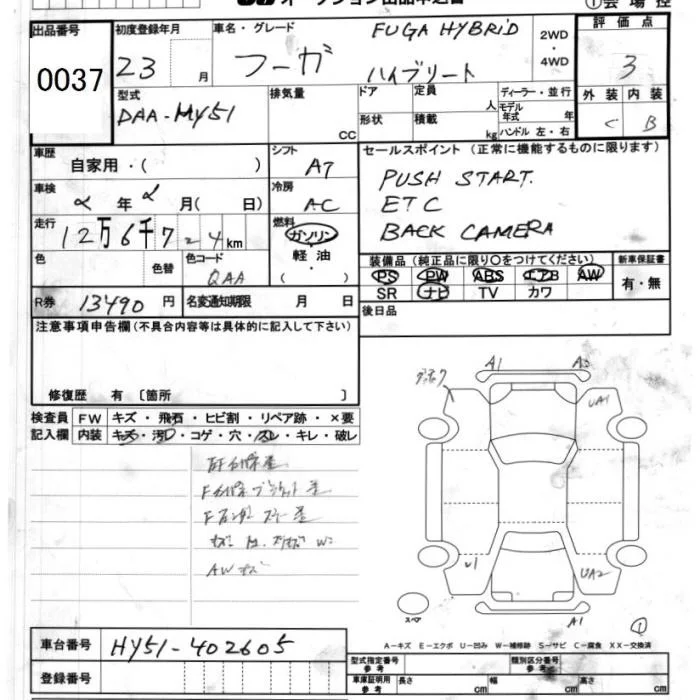 オークション出品申込書 ①会場控
出品番号 初度登録年月 車名・グレード FUGA HYBRID 2WD・4WD 評価点
0037 23 月 フーガ ハイブリート 3
型式 DAA-HY51 排気量 CC ドア 定員 人 ディーラー・並行 外装 内装
形状 積載 kg モデル年式 年 ハンドル 左・右 C B
車歴 自家用・( ) シフト AT セールスポイント(正常に機能するものに限ります)
車検 年 月( 日) 冷房 AC PUSH START.
ETC
走行 12万6千724km 燃料 ガソリン・軽油・( ) BACK CAMERA
色 色替 色コード QAA 装備品(純正品に限り○をつけてください) 新車保証書
PS PW ABS エアB AW 有・無
SR ナビ TV カワ
R券 13490円 名変通知期限 月 日 後日品
注意事項申告欄(不具合内容等は具体的に記入して下さい)
修復歴 有〔箇所 〕
検査員 FW キズ・飛石・ヒビ割・リペア跡・×要
記入欄 内装 キズ・汚レ・コゲ・穴・スレ・キレ・破レ
A1
UA1
W1
UA2
AW キズ
スペア
A1
①
A-キズ E-エクボ U-凹み W-補修跡 S-サビ C-腐食 XX-交換済
車台番号 HY51-402605
型式指定番号 参考 類別区分番号 参考
登録番号 車庫証明用 参考 長さ cm 幅 cm 高さ cm